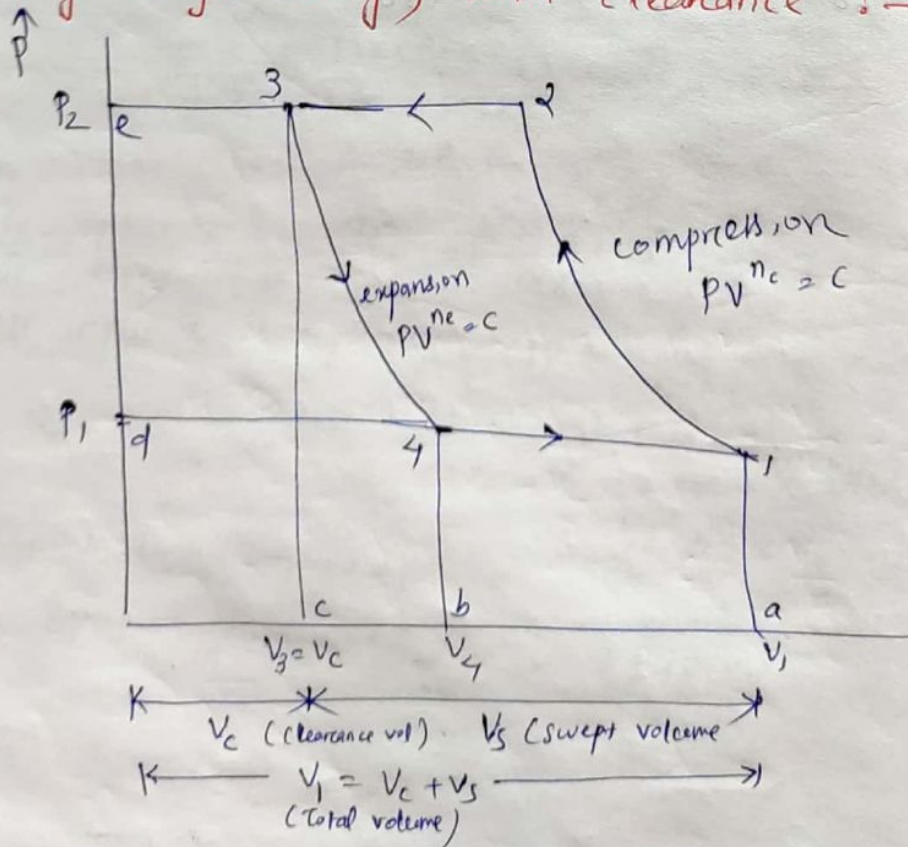 clearance :-
P
P₂ e 3 2
compression
PV^nc = C
expansion
PV^ne = C
P₁ d 4 1
c b a
V₃ = Vc V₄ V₁
Vc (Clearance vol) Vs (swept volume
V₁ = Vc + Vs
(Total volume)